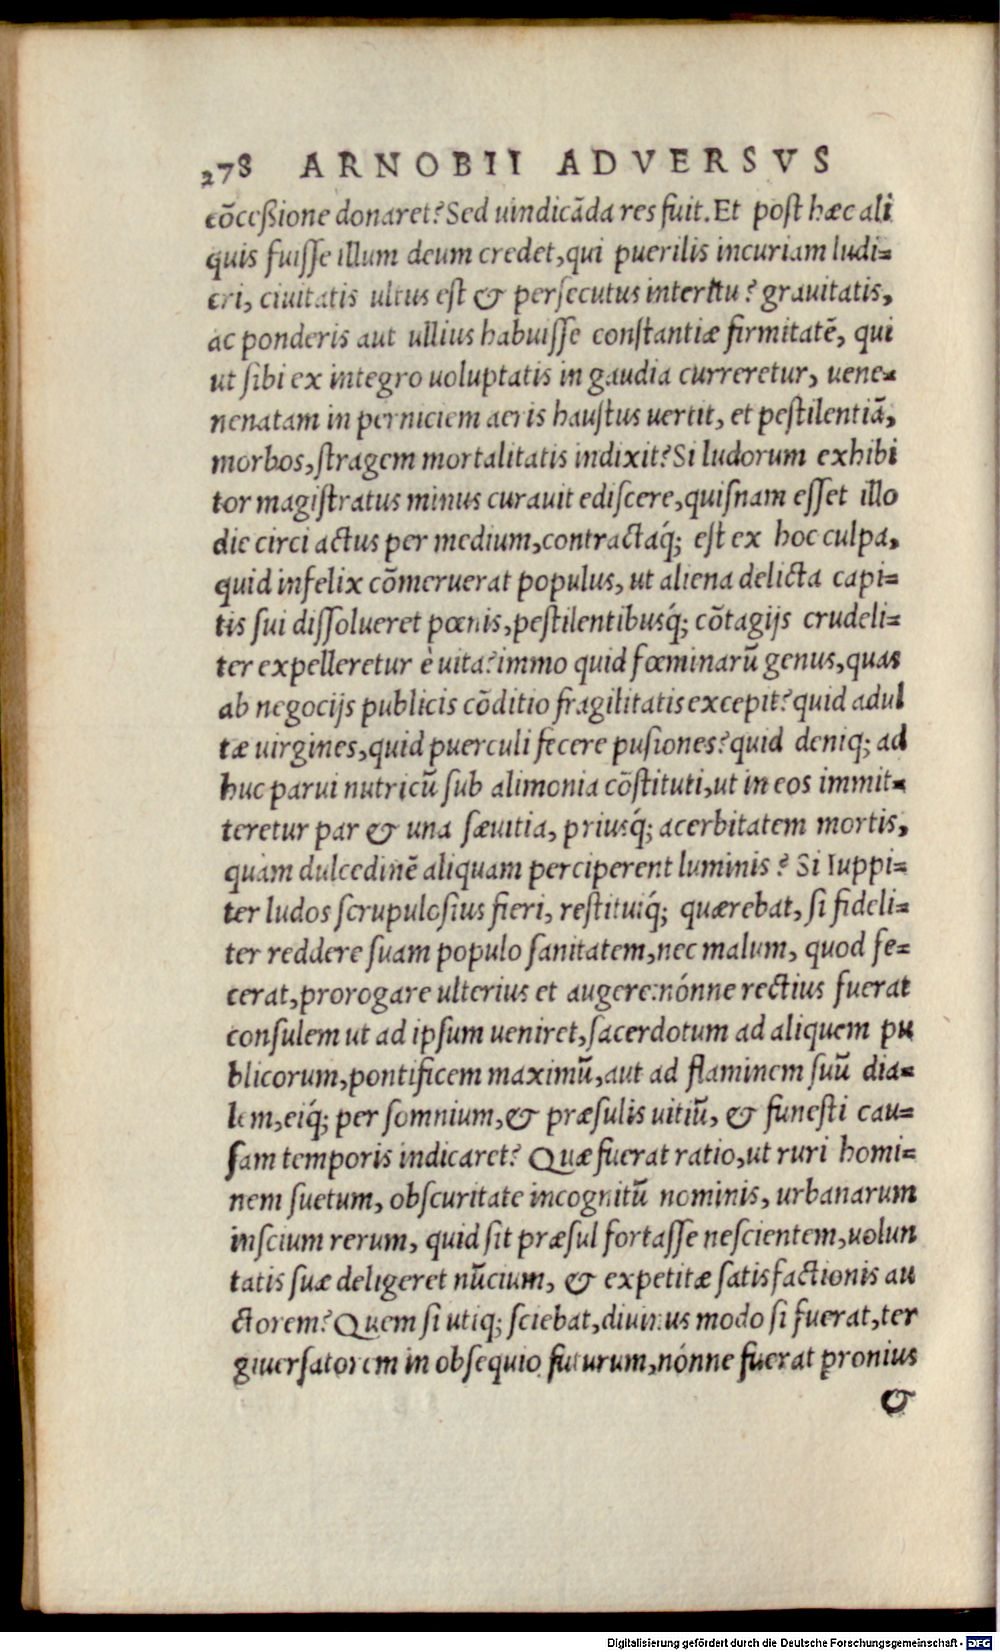 278 ARNOBII ADVERSVS
cōceßione donaret? Sed uindicāda res fuit. Et post hæc ali
quis fuisse illum deum credet, qui puerilis incuriam ludi-
cri, ciuitatis ultus est & persecutus interitu? grauitatis,
ac ponderis aut ullius habuisse constantiæ firmitatē, qui
ut sibi ex integro uoluptatis in gaudia curreretur, uene-
nenatam in perniciem aeris haustus uertit, et pestilentiā,
morbos, stragem mortalitatis indixit? Si ludorum exhibi
tor magistratus minus curauit ediscere, quisnam esset illo
die circi actus per medium, contractaq́; est ex hoc culpa,
quid infelix cōmeruerat populus, ut aliena delicta capi-
tis sui dissolueret pœnis, pestilentibusq́; cōtagijs crudeli-
ter expelleretur è uita? immo quid fœminarū genus, quas
ab negocijs publicis cōditio fragilitatis excepit? quid adul
tæ uirgines, quid puerculi fecere pusiones? quid deniq; ad
huc parui nutricū sub alimonia cōstituti, ut in eos immit-
teretur par & una sæuitia, priusq́; acerbitatem mortis,
quàm dulcedinē aliquam perciperent luminis? Si Iuppi-
ter ludos scrupulosius fieri, restituiq́; quærebat, si fideli-
ter reddere suam populo sanitatem, nec malum, quod fe-
cerat, prorogare ulterius et augere: nónne rectius fuerat
consulem ut ad ipsum ueniret, sacerdotum ad aliquem pu
blicorum, pontificem maximū, aut ad flaminem suū dia-
lem, eiq́; per somnium, & præsulis uitiū, & funesti cau-
sam temporis indicaret? Quæ fuerat ratio, ut ruri homi-
nem suetum, obscuritate incognitū nominis, urbanarum
inscium rerum, quid sit præsul fortasse nescientem, uolun
tatis suæ deligeret nūcium, & expetitæ satisfactionis au
ctorem? Quem si utiq; sciebat, diuinus modo si fuerat, ter
giuersatorem in obsequio futurum, nónne fuerat pronius
&
Digitalisierung gefördert durch die Deutsche Forschungsgemeinschaft - DFG